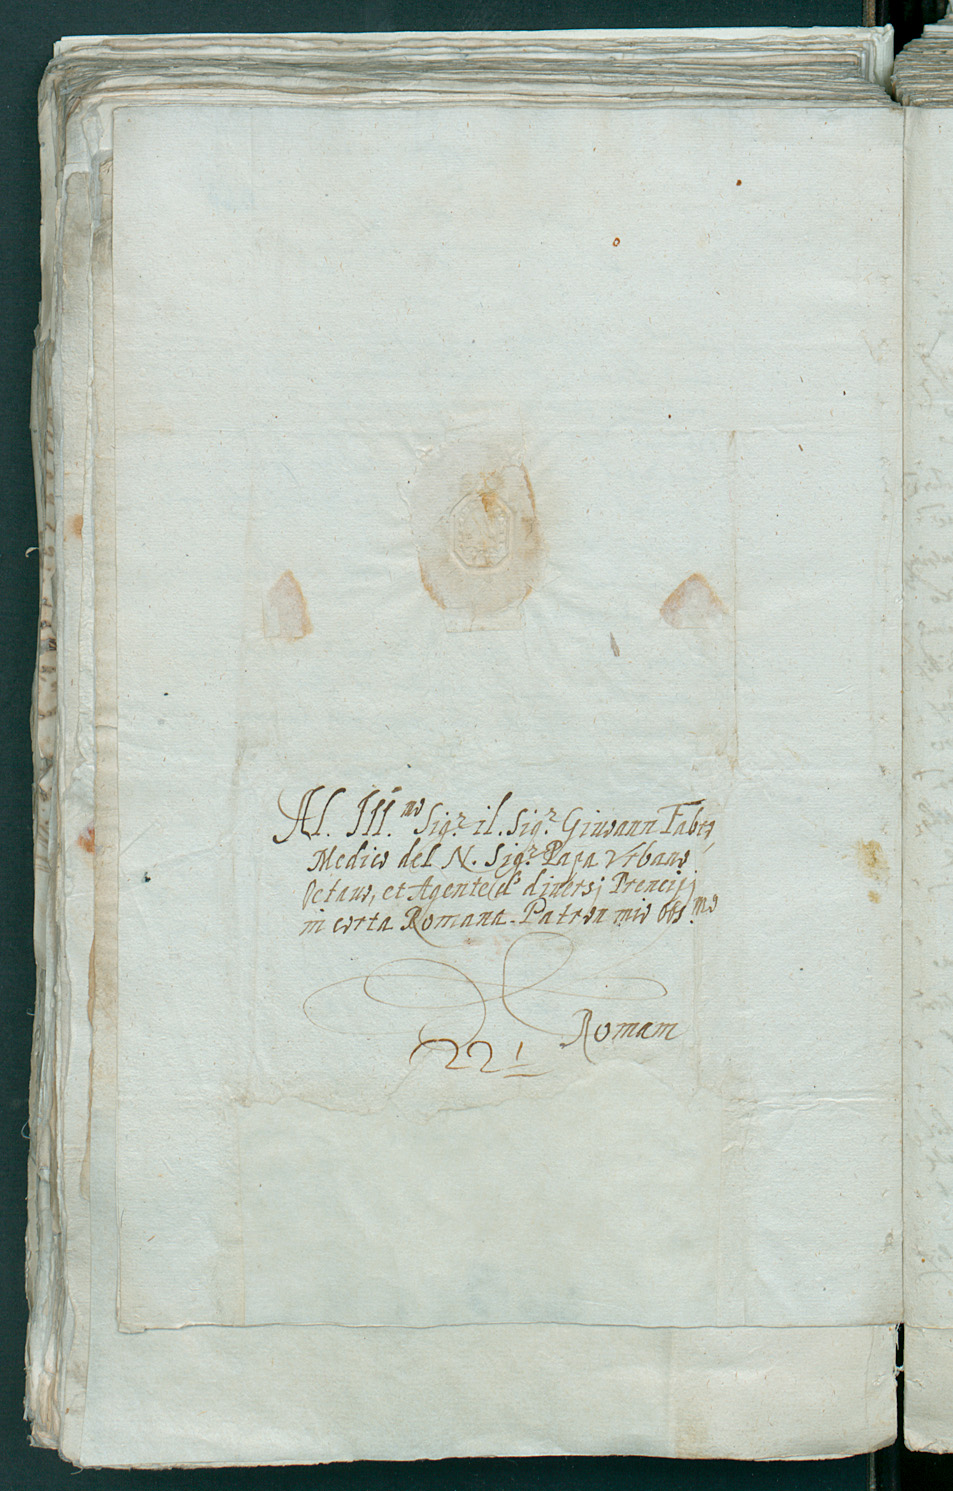 Al. Ill.mo Sig.r il. Sig.r Giovann Fabro
Medico del N. Sig.r Papa Vrbano
Octavo, et Agente di diversi Prencipi
in corta Romana. Patron mio oss.mo
Romam
221